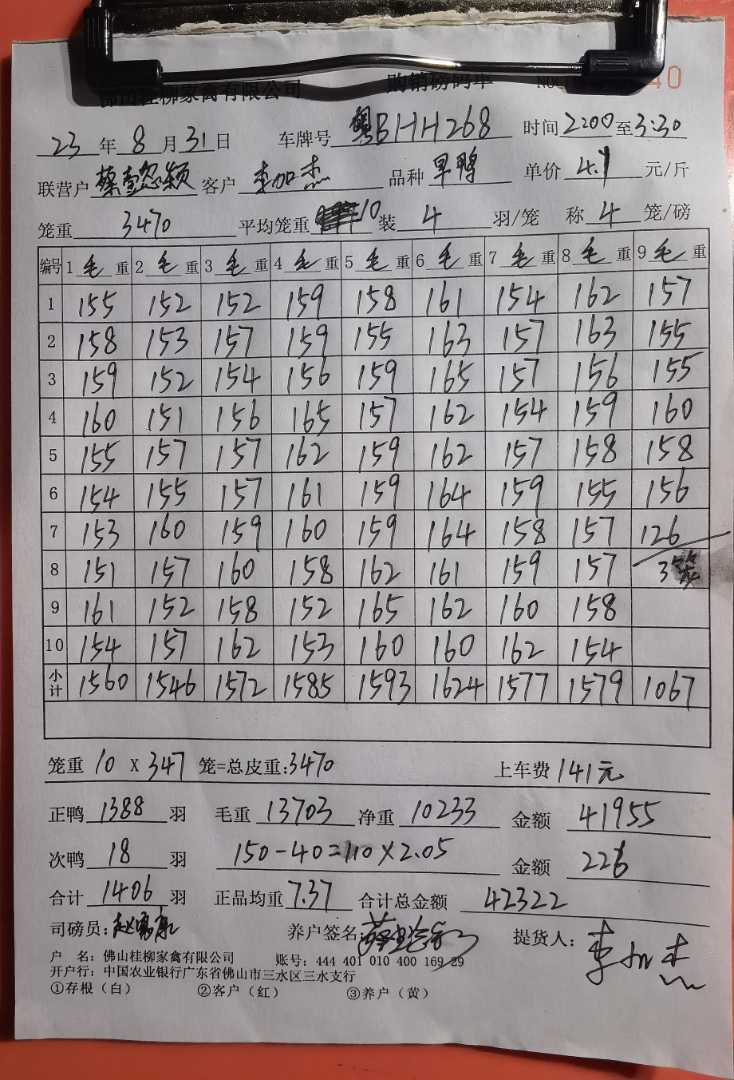 佛山桂柳家禽有限公司 购销磅码单 NO. 40
23 年 8 月 31 日 车牌号 粤BHH268 时间 2200 至 3:30
联营户 客户 李加杰 品种 旱鸭 单价 4.1 元/斤
笼重 3470 平均笼重 10 装 4 羽/笼 称 4 笼/磅
编号 1 毛 重 2 毛 重 3 毛 重 4 毛 重 5 毛 重 6 毛 重 7 毛 重 8 毛 重 9 毛 重
1 155 152 152 159 158 161 154 162 157
2 158 153 157 159 155 163 157 163 155
3 159 152 154 156 159 165 157 156 155
4 160 151 156 165 157 162 154 159 160
5 155 157 157 162 159 162 157 158 158
6 154 155 157 161 159 164 159 155 156
7 153 160 159 160 159 164 158 157 126
8 151 157 160 158 162 161 159 157 3笼
9 161 152 158 152 165 162 160 158
10 154 157 162 153 160 160 162 154
小计 1560 1546 1572 1585 1593 1624 1577 1579 1067
笼重 10 X 347 笼=总皮重:3470 上车费 141元
正鸭 1388 羽 毛重 13703 净重 10233 金额 41955
次鸭 18 羽 150-40=110×2.05 金额 226
合计 1406 羽 正品均重 7.37 合计总金额 42322
司磅员: 养户签名 提货人: 李加杰
户 名: 佛山桂柳家禽有限公司 账号: 444 401 010 400 169 29
开户行: 中国农业银行广东省佛山市三水区三水支行
①存根(白) ②客户(红) ③养户(黄)